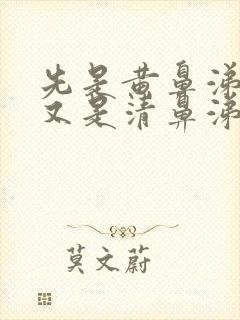 先是黄鼻涕
又是清鼻涕
莫文蔚